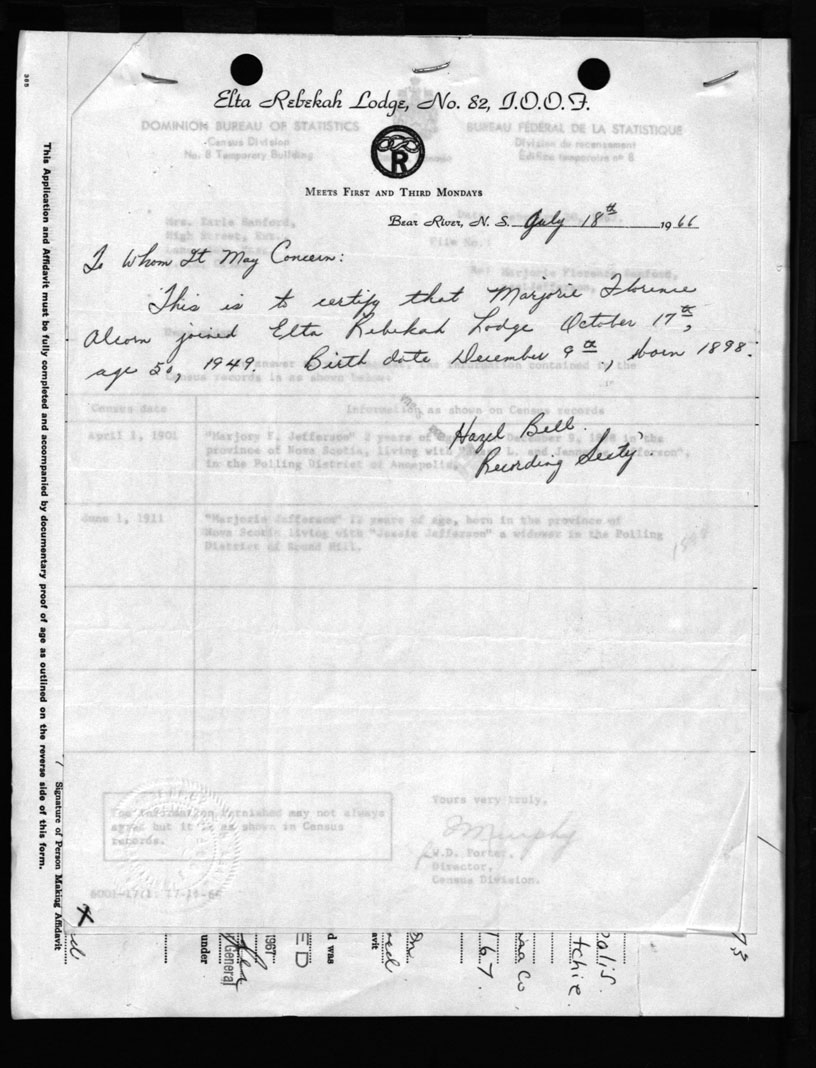 Elta Rebekah Lodge, No. 82, I.O.O.F.
DOMINION BUREAU OF STATISTICS
BUREAU FÉDÉRAL DE LA STATISTIQUE
Census Division
Division du recensement
No. 8 Temporary Building
Édifice temporaire nº 8
R
MEETS FIRST AND THIRD MONDAYS
Bear River, N. S. July 18th 1966
Mrs. Earle Sanford,
High Street, Ext.,
File No.:
Re: Marjorie Florence Sanford,
To Whom It May Concern:
This is to certify that Marjorie Florence
Alcorn joined Elta Rebekah Lodge October 17th,
age 50, 1949. Birth date December 9th, born 1898.
contained in the
Census records is as shown below:
Census date
Information as shown on Census records
April 1, 1901
"Marjory F. Jefferson" 2 years of
December 9, in the
province of Nova Scotia, living with
in the Polling District of Annapolis,
Hazel Bell.
Recording Sec'ty
June 1, 1911
"Marjorie Jefferson" 12 years of age, born in the province of
Nova Scotia living with "Jessie Jefferson" a widower in the Polling
District of Round Hill.
1898
The information furnished may not always
agree but it is as shown in Census
records.
Yours very truly,
Murphy
W.D. Porter,
Director,
Census Division.
6001-17(1: 17-11-64
This Application and Affidavit must be fully completed and accompanied by documentary proof of age as outlined on the reverse side of this form.
Signature of Person Making Affidavit
X
under
General
1967
ED
d was
avit
167.
Co
tchie
polis.
385